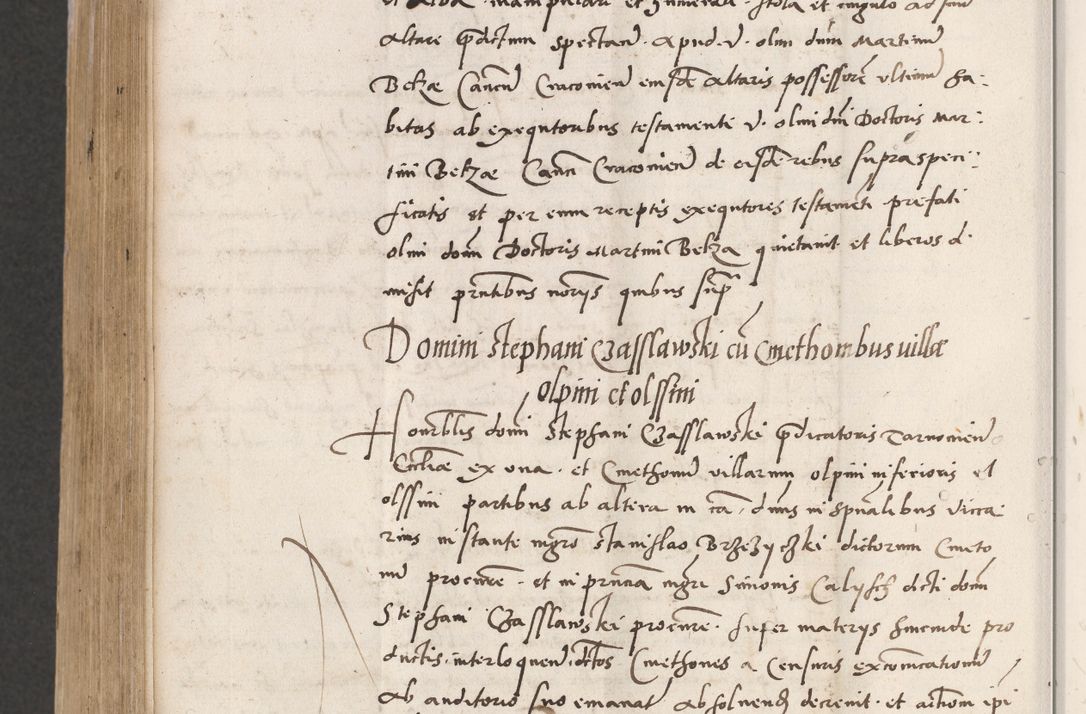 et Alba manipulari et humerali stola et cingulo ad suū
altare p̄dictum spectan̄. apud. v. olim dūm Martinū
Belzæ Canon̄ Cracovien̄ eiusdē altaris possessorē ultimū ha⸗
bitas ab exequutoribus testamenti v. olim dm̄i Doctoris Mar⸗
tini Belzæ Can̄ Cracovien̄ de eisdē rebus supraspeci⸗
ficatis et per eum receptis exequutores testamēti prefati
olim domī Doctoris Martini Belza quietavit et liberos d.
misit pn̄tibus noriis quibus sup̄
Domini Stephani Czasslawski cū Cmethonibus villæ
olpini et olssini
Honrblis domī Stephani Czasslawski p̄dicatoris Tarnovien̄
Eccliæ ex una. et Cmethonū villarum olpini inferioris et
olssini partibus ab altera in cā, dnus in spūalibus vicca
rius instante mgrō Stanislao Brzezyczki dictorum Cmeto
nū procurē. et in pn̄tia mgri Simonis Calysch dicti domī
Stephani Czasslawski procurē. super materiis hincinde pro
ductis. interloquen̄. dictos Cmethones a censuris excommcationū
ab auditorio suo emanat̄ absolvend̄ decrevit. et actiōem ipi